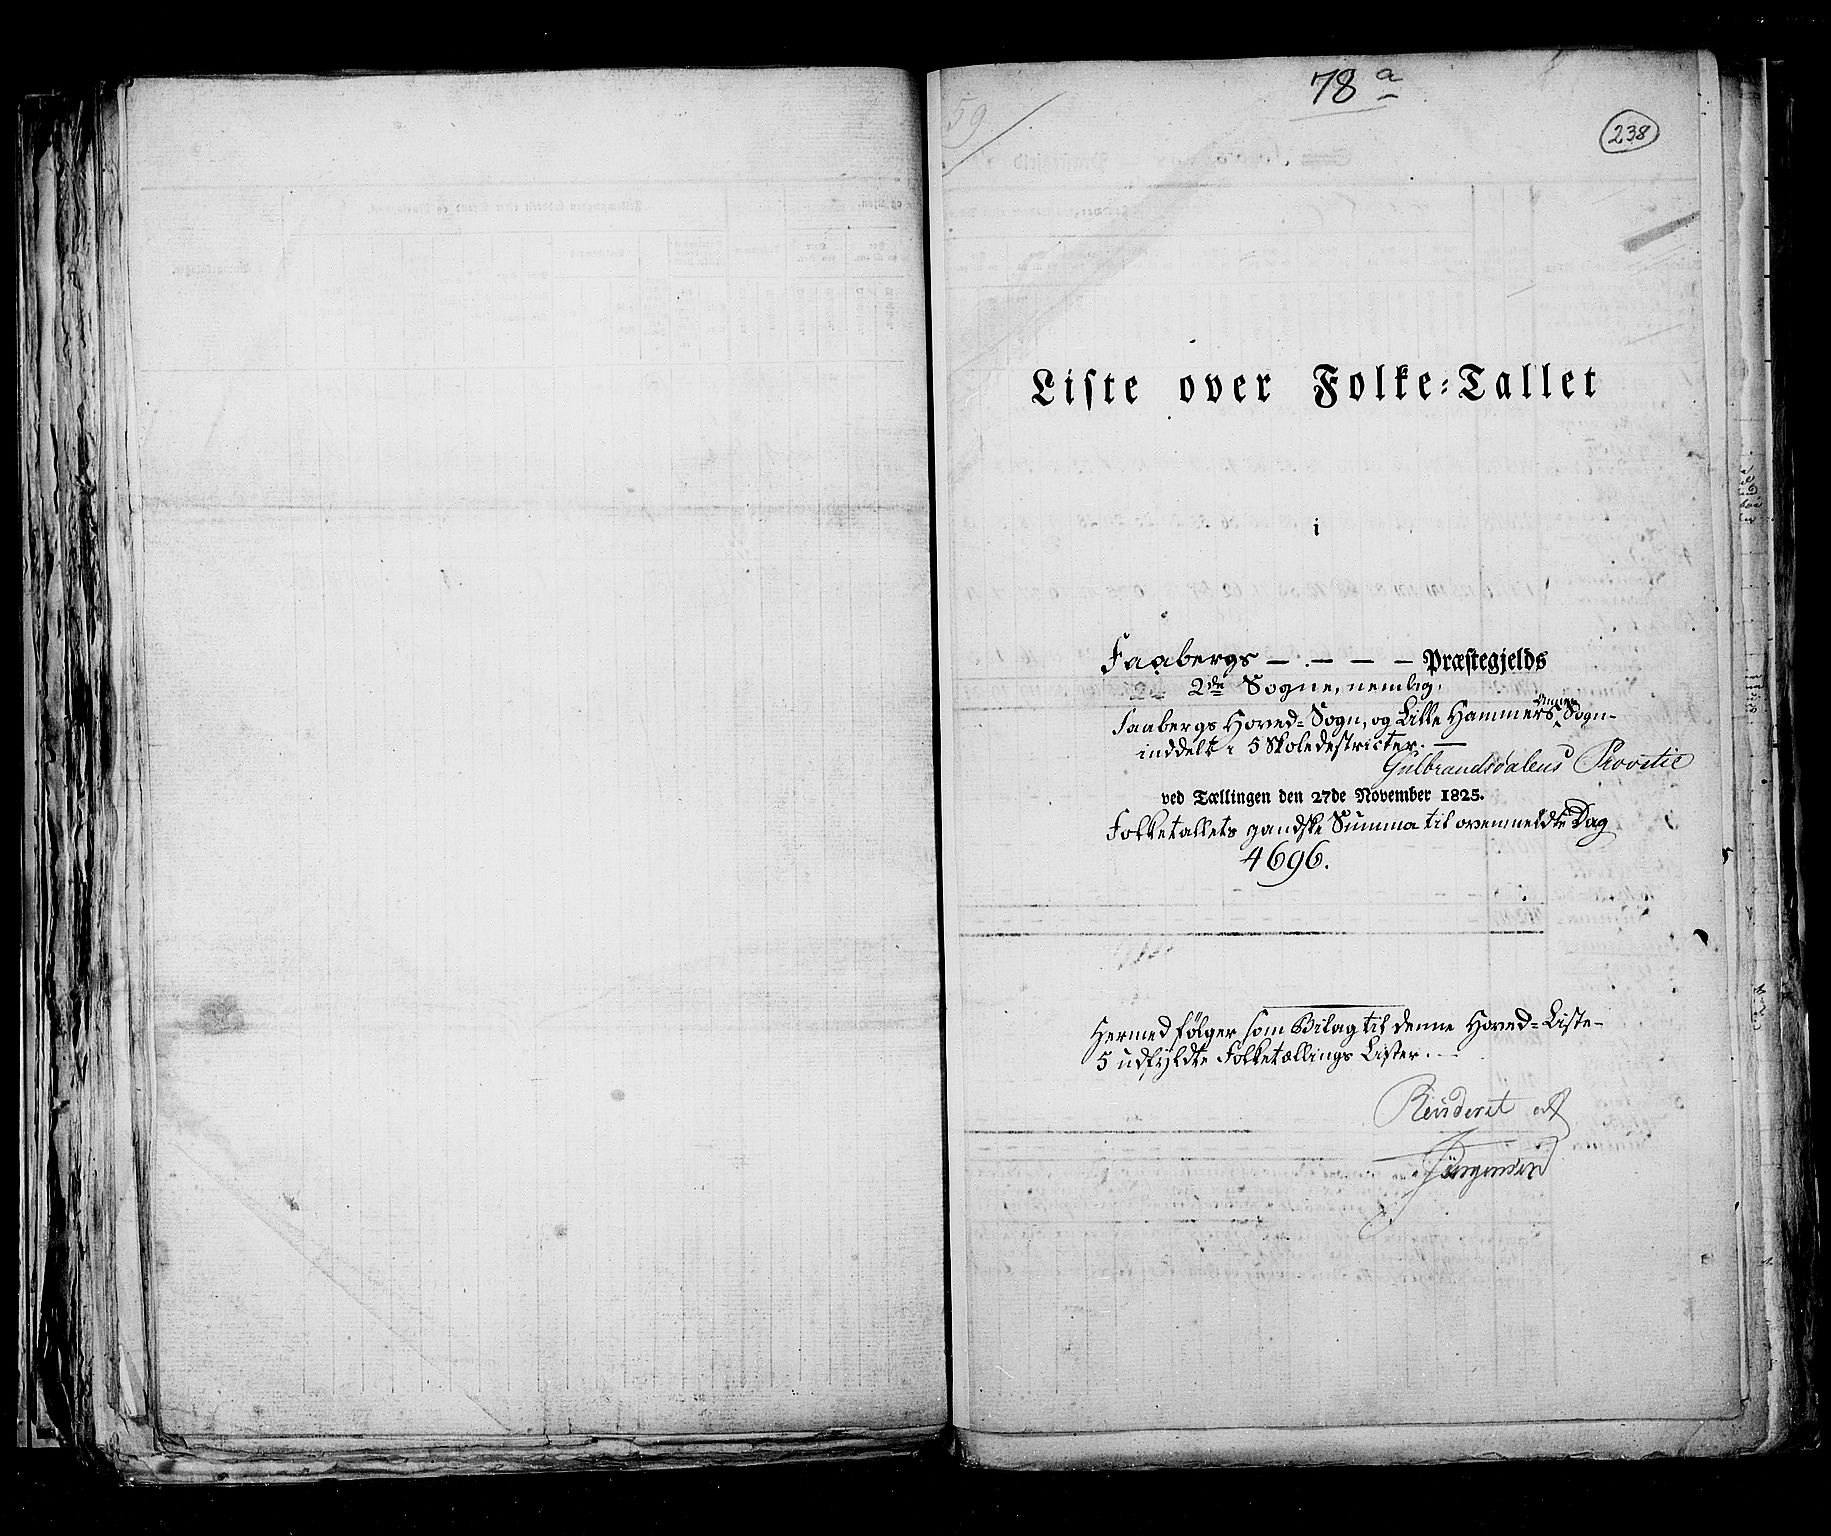 78 a
59
238
Liste over Folke=Tallet
i
Faabergs — . — — — Præstegjelds
2de Sogne, nemlig,
Faabergs Hoved=Sogn, og Lille Hammers Annex Sogn
inddelt i 5 Skoledestricter. —
Gulbrandsdalens Provstie
ved Tællingen den 27de November 1825.
Folketallets gandske Summa til ovenmeldte Dag
4696.
Hermed følger som Bilag til denne Hoved=Liste
5 udfyldte Folketællings Lister. —
Revideret af
Jürgensen